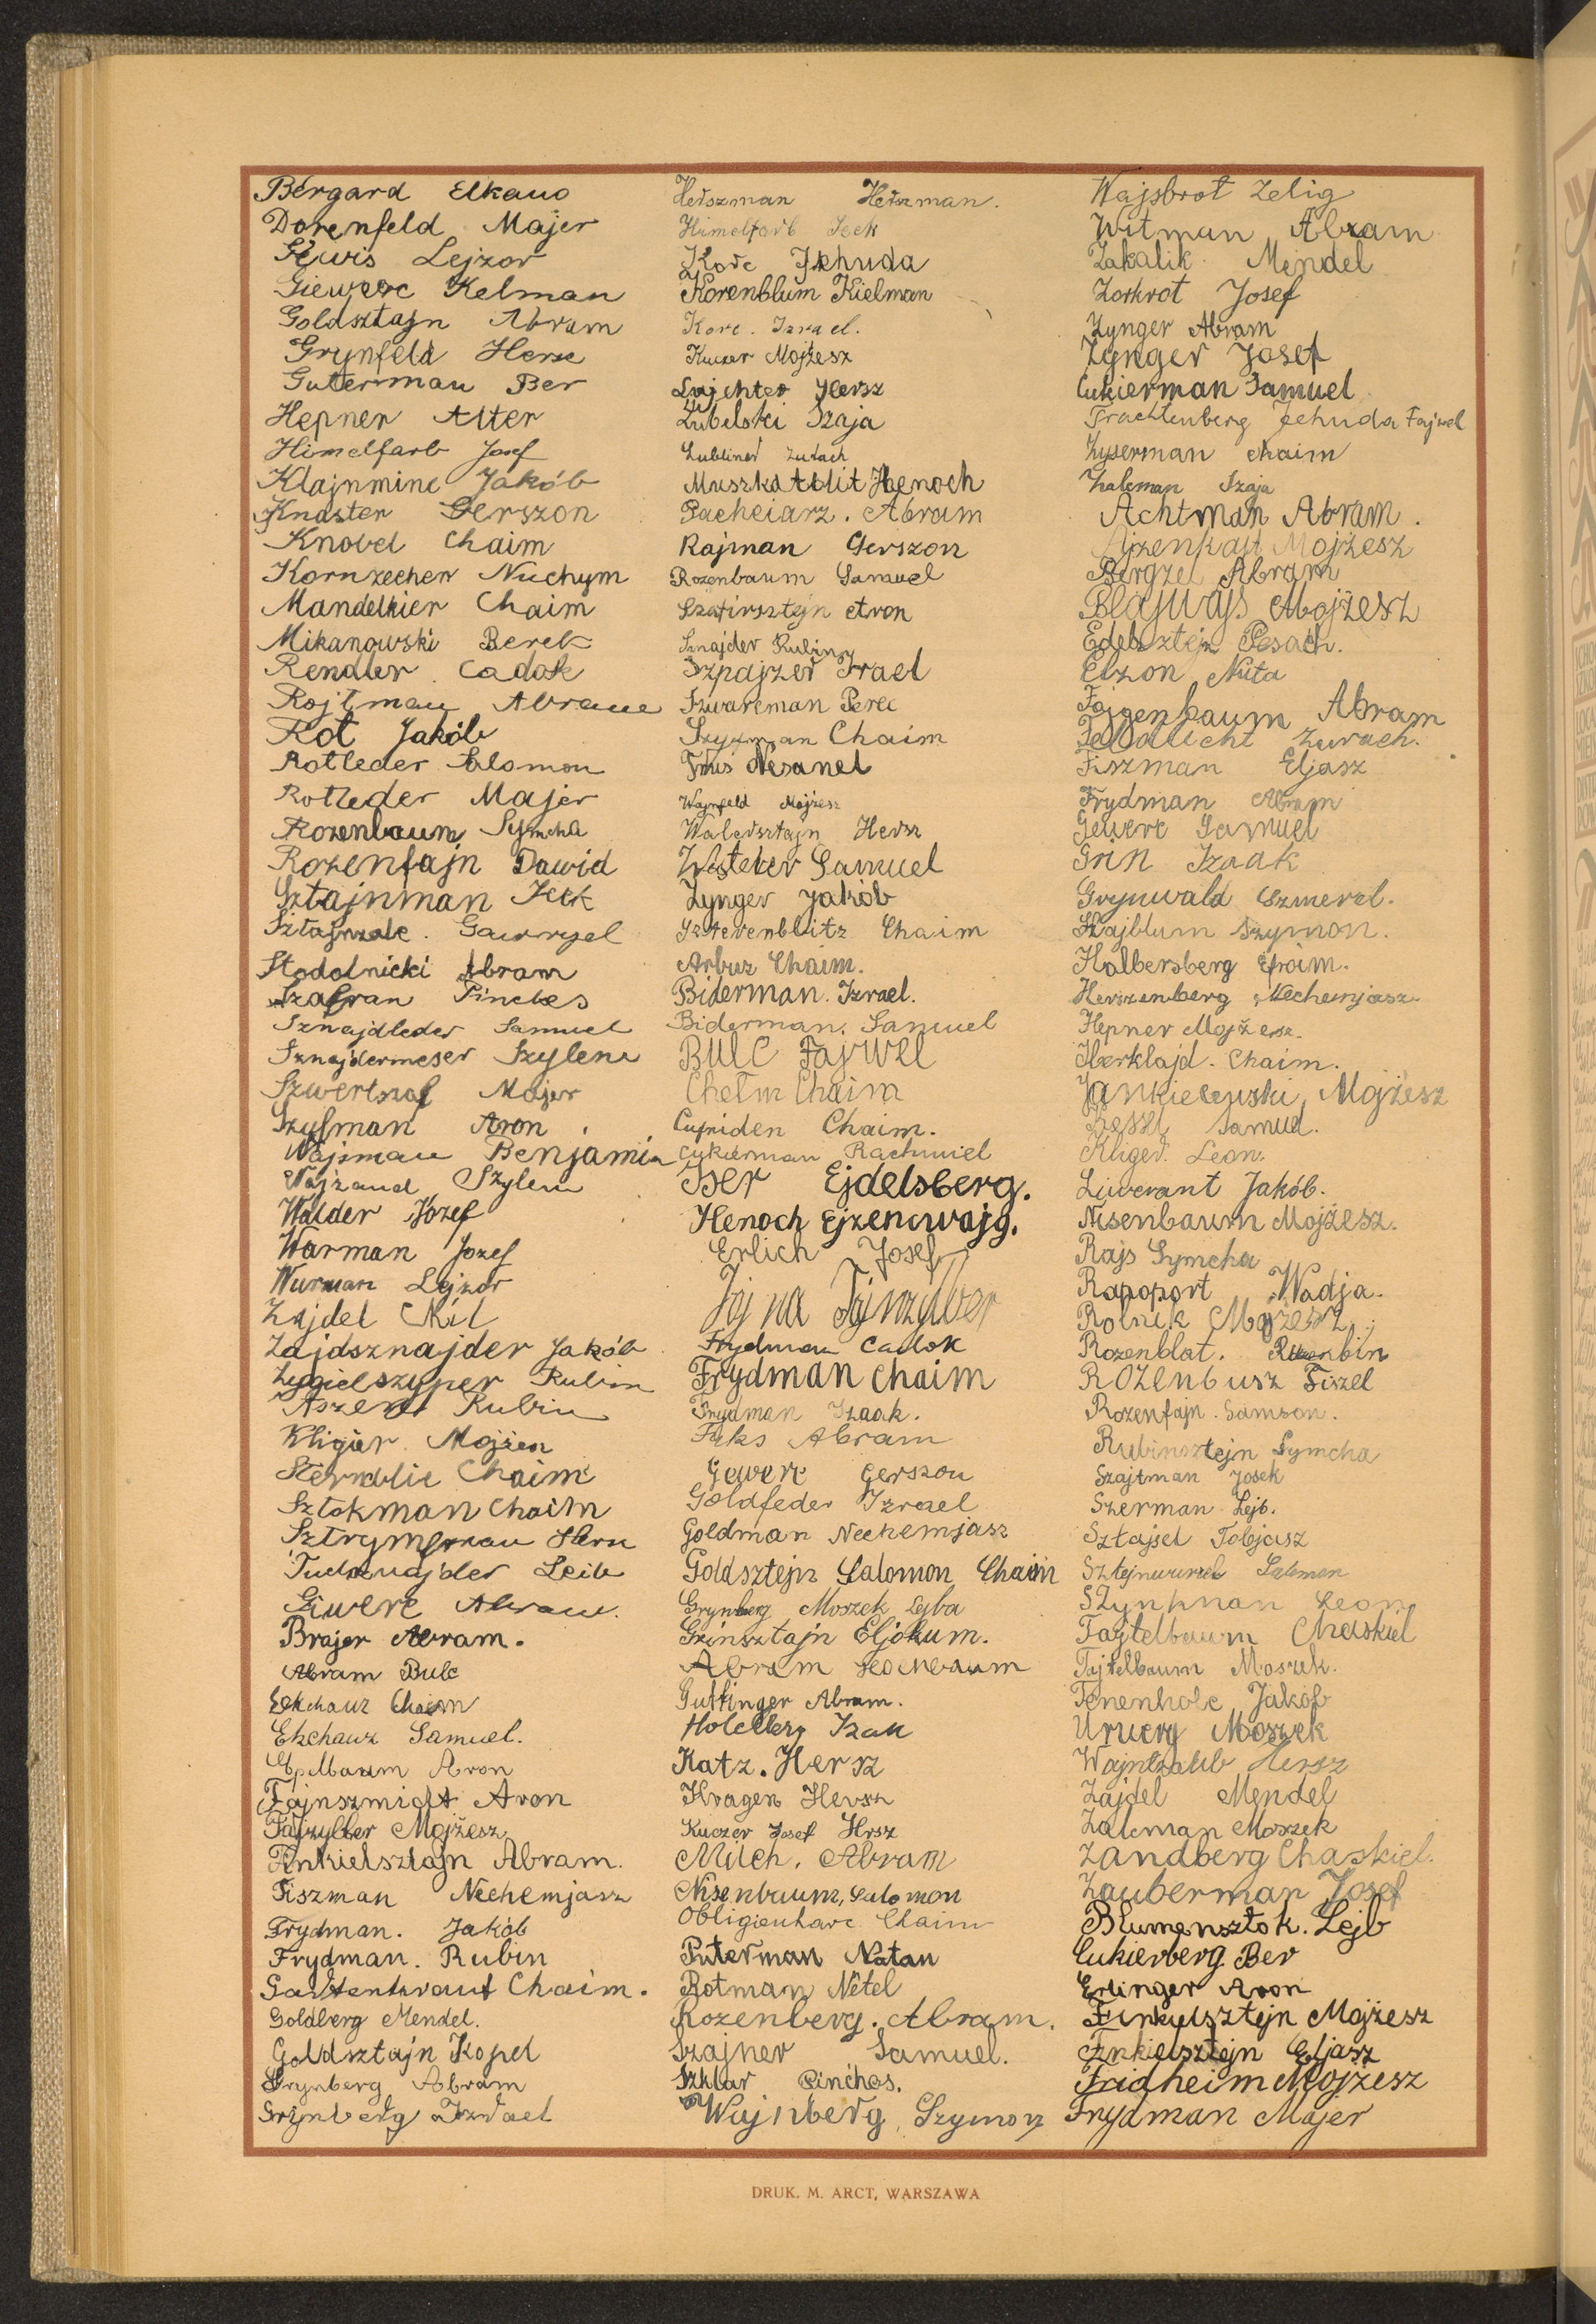 Bergard Elkano
Dorenfeld Majer
Lejzor
Giewerc Kelman
Goldsztajn Abram
Grynfeld Hersz
Guterman Ber
Hepner Alter
Himelfarb Josef
Klajnminc Jakób
Knaster Gerszon
Knobel Chaim
Kornzecher Nuchym
Mandelkier Chaim
Mikanowski Berek
Rendler Cadok
Rojtman Abram
Rot Jakób
Rotleder Salomon
Rotleder Majer
Rozenbaum Symcha
Rozenfajn Dawid
Sztajnman Icek
Gawryel
Stodolnicki Abram
Szafran Pinches
Sznajdleder Samuel
Sznajdermeser Szylem
Szwertszaf Majer
Szyfman Aron
Wajsman Benjamin
Wajzand Szylem
Walder Józef
Warman Jozef
Wurman Lejzor
Zajdel Kil
Zajdsznajder Jakób
Zygielszyper Rubin
Rubin
Kligier Mojżesz
Sterndlic Chaim
Sztokman Chaim
Sztrymerman
Leib
Giwerc Abram.
Brajer Abram.
Abram Bulc
Ekchauz Chaim
Ekchauz Samuel.
Epelbaum Aron
Fajnszmidt Aron
Fajzylber Mojżesz
Finkielsztajn Abram.
Fiszman Nechemjasz
Frydman. Jakób
Frydman. Rubin
Gartenkraut Chaim.
Goldberg Mendel.
Goldsztajn Kopel
Grynberg Abram
Grynberg Izrael
Herszman Herszman.
Himelfarb Icek
Korc Jehuda
Korenblum Kielman
Korc. Izrael.
Kuczer Mojżesz
Lajchter Hersz
Lubelski Szaja
Lubliner
Muszkatblit Henoch
Pacheiarz. Abram
Rajman Gerszon
Rozenbaum Samuel
Szafirsztejn Aron
Sznajder Rubin
Szpajzer Izrael
Szwarcman Perec
Szyfman Chaim
Nesanel
Wajnfeld Mojżesz
Walersztajn Hersz
Samuel
Zynger Jakób
Szterenblitz Chaim
Arbuz Chaim.
Biderman. Izrael.
Biderman. Samuel
BULC Fajwel
Chełm Chaim
Chaim.
Cukierman Rachmiel
Iser Ejdelsberg.
Henoch Ejzenwajg.
Erlich Josef
Fajnzylber
Frydman Cadok
Frydman Chaim
Frydman Izaak.
Fuks Abram
Gewerc Gerszon
Goldfeder Izrael
Goldman Nechemjasz
Goldsztejn Salomon Chaim
Grynberg Moszek Lejba
Grinsztajn Eljokum.
Abram
Guttinger Abram.
Holcberg Izak
Katz. Hersz
Kragen Hersz
Kuczer Josef Hrsz
Milch. Abram
Nisenbaum, Salomon
Obligienharc Chaim
Puterman Natan
Rotman Netel
Rozenberg. Abram.
Szajner Samuel.
Szklar Pinchos.
Wajnberg Szymon
Wajsbrot Zelig
Witman Abram
Zakalik Mendel
Zorkrot Josef
Zynger Abram
Zynger Josef
Cukierman Samuel
Trachtenberg Jehuda Fajwel
Zyserman Chaim
Zalcman Szaja
Achtman Abram.
Ajzenkajt Mojżesz
Abram
Blajwajs Mojżesz
Edelsztejn Pesach.
Elzon Nuta
Fajgenbaum Abram
Feldlicht Zurach.
Fiszman Eljasz
Frydman Abram
Gewerc Samuel
Grin Izaak
Grynwald Szmerel.
Hajblum Szymon.
Halbersberg Efroim.
Herszenberg Nechemjasz
Hepner Mojżesz.
Iberklajd. Chaim.
Jankielewski Mojżesz
Samuel.
Kliger. Leon.
Liwerant Jakób.
Nisenbaum Mojżesz.
Rajs Symcha
Rapoport Wadja.
Rolnik Mojżesz
Rozenblat.
ROZENbusz Fiszel
Rozenfajn. Samson.
Rubinsztejn Symcha
Szajtman Josek
Szerman Lejb.
Sztajsel Tobjasz
Sztejnwurcel Salomon
Leon
Tajtelbaum Chaskiel
Tajtelbaum Moszek.
Tenenholc Jakób
Urwerg Moszek
Hersz
Zajdel Mendel
Zalcman Moszek
Zandberg Chaskiel.
Zauberman Josef
Blumensztok. Lejb
Cukierberg Ber
Erlinger Aron
Finkielsztejn Mojżesz
Finkielsztejn Eljasz
Fridheim Mojżesz
Frydman Majer
DRUK. M. ARCT, WARSZAWA